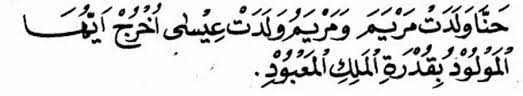 حَنَّا وَلَدَتْ مَرْيَمَ وَمَرْيَمُ وَلَدَتْ عِيْسٰى اُخْرُجْ اَيُّهَا
الْمَوْلُوْدُ بِقُدْرَةِ الْمَلِكِ الْمَعْبُوْدِ.